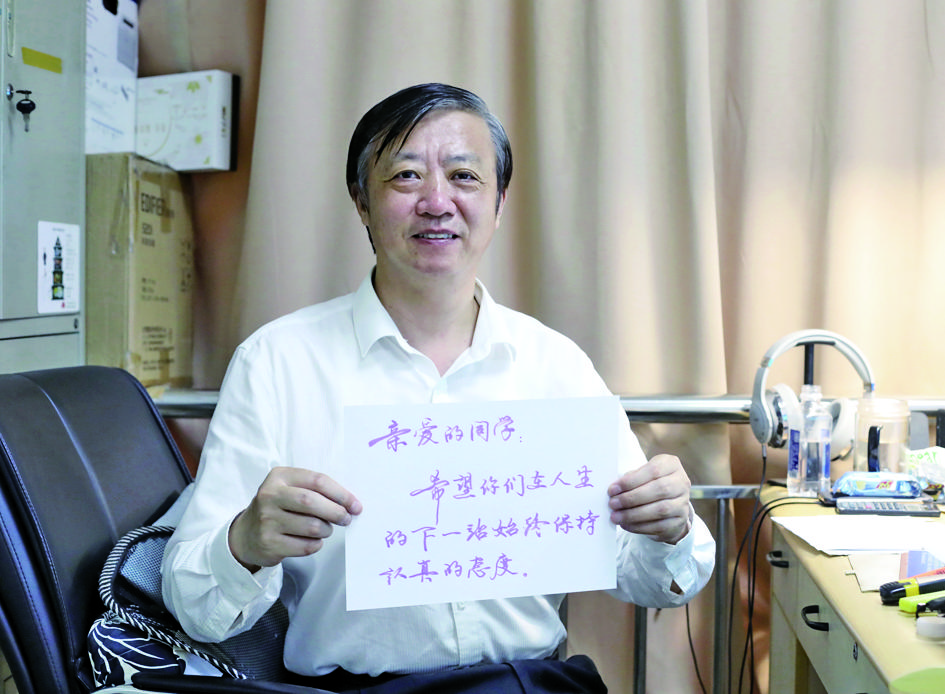 EDIFIER
亲爱的同学:
希望你们在人生
的下一站始终保持
认真的态度。